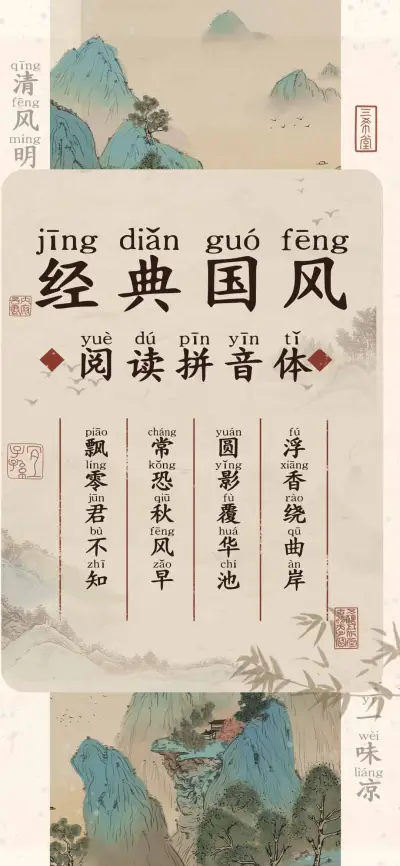 qīng fēng míng
清风明
三希堂
jīng diǎn guó fēng
经典国风
yuè dú pīn yīn tǐ
阅读拼音体
fú xiāng rào qū àn
浮香绕曲岸
yuán yǐng fù huá chí
圆影覆华池
cháng kǒng qiū fēng zǎo
常恐秋风早
piāo líng jūn bù zhī
飘零君不知
yī wèi liáng
一味凉